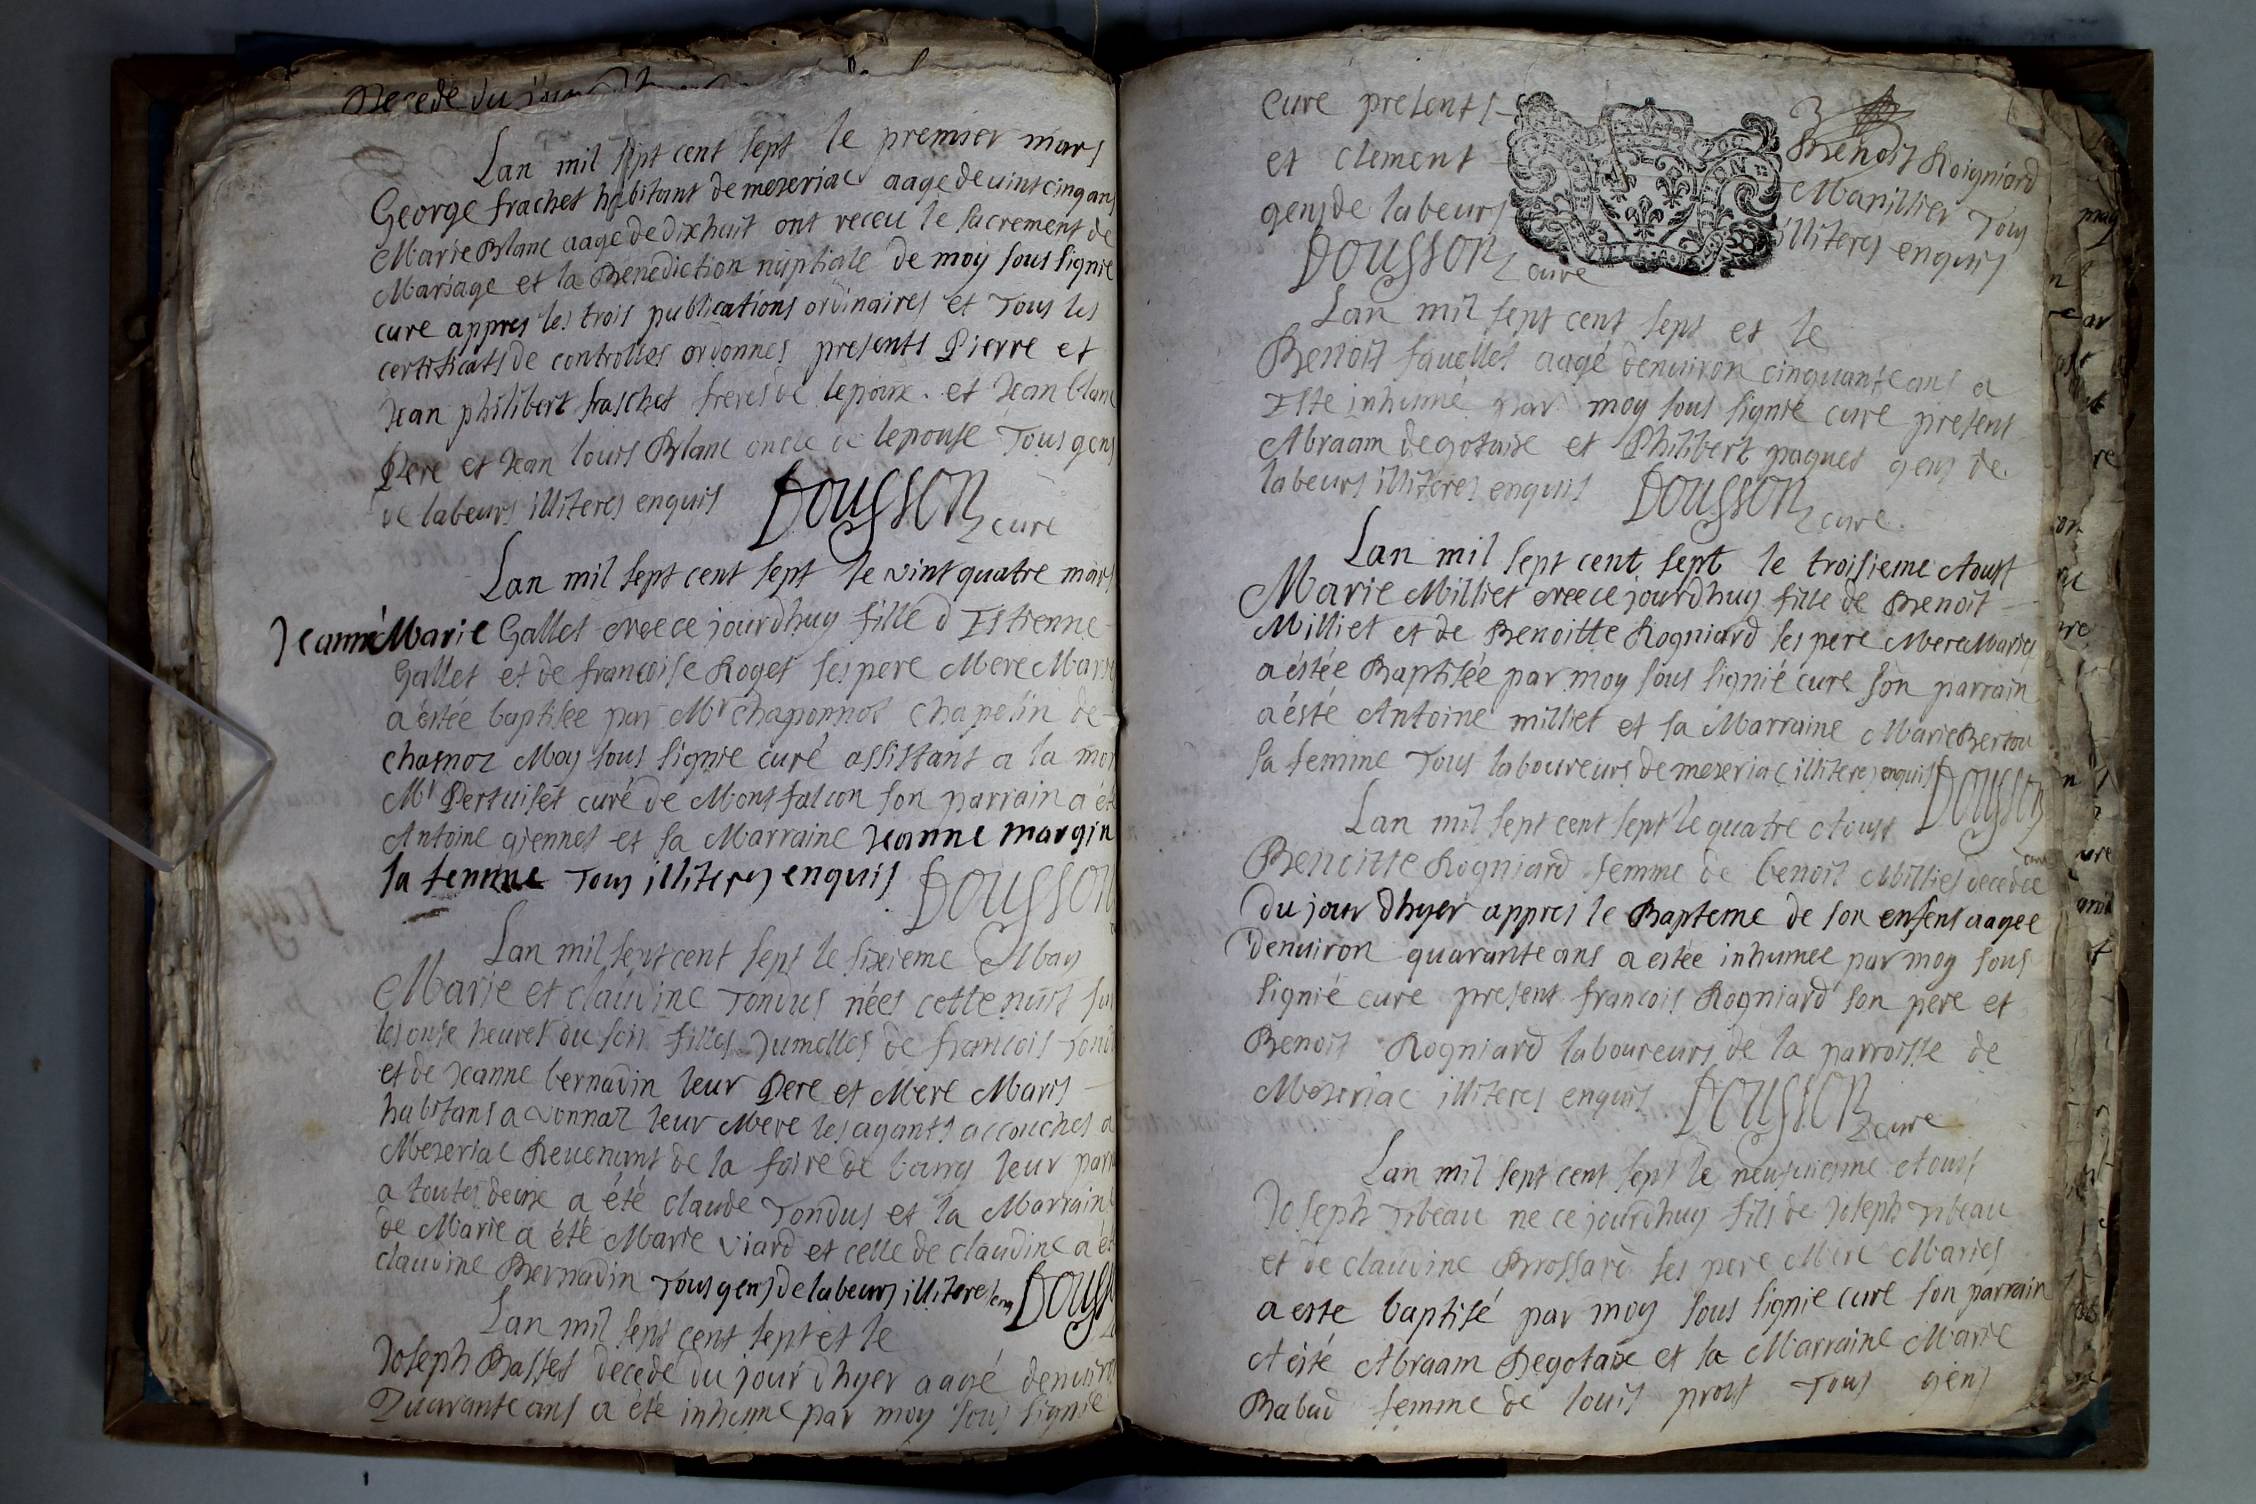 Decede du jour
Lan mil sept cent sept le premier mars
George frachet habitant de mezeriac aagé de vint cinq ans
Marie Blanc aagé de dixhuit ont receu le sacrement de
Mariage et la Benediction nuptiale de moy sous signié
curé appres les trois publications ordinaires et Tous les
certificats de controlles ordonnes presents Pierre et
Jean philibert fraschet freres de lepoux . et Jean blanc
Pere et Jean louis Blanc oncle de lepouse Tous gens
de labeurs illiteres enquis DOUSSON curé
Lan mil sept cent sept le vint quatre mars
Jeanne Marie Gallet née ce jourdhuy fille d Estienne
Gallet et de francoise Roget ses pere Mere Maries
a éstée baptisée par Mr chaponnot chapelin de
chasnoz Moy sous signié curé assistant a la
Mr Pertuiset curé de Montfalcon son parrain a été
Antoine giennet et sa Marraine Jeanne margin
sa femme Tous illiteres enquis DOUSSON
Lan mil sept cent sept le sixieme May
Marie et claudine Tondus nées cette nuit sur
les onse heures du soir filles Jumelles de francois Tondu
et de Jeanne bernadin leur Pere et Mere Maris
habitans a vonnaz leur Mere les ayants accouches a
Mezeriac Revenant de la foire de bourg leur parrain
a toutes deux a été claude Tondus et la Marraine
de Marie a été Marie viard et celle de claudine a été
claudine Bernadin Tous gens de labeurs illiteres enq DOUSS
Lan mil sept cent sept et le
Joseph Basset decedé du jour dhyer aagé denviron
Quarante ans a été inhumé par moy sous signié
curé presents Benoit Roigniard
et clement Manillier Tous
gens de labeurs illiteres enquis
DOUSSON curé
Lan mil sept cent sept et le
Benoist fauellet aagé denuiron cinquante ans a
Esté inhumé par moy sous signié curé present
Abraam degotaix et Philibert paquet gens de
labeurs illiteres enquis DOUSSON curé.
Lan mil sept cent sept le troisieme Aoust
Marie Milliet née ce jourdhuy fille de Benoit
Milliet et de Benoitte Rogniard ses pere Mere Maries
a éstée Baptisée par moy sous signié curé son parrain
a ésté Antoine milliet et sa Marraine Marie Bertou
sa femme Tous laboureurs de mezeriac illiteres enquis DOUSSON
Lan mil sept cent sept le quatre Aoust
Benoitte Rogniard femme de benoit Milliet decedee
du jour dhyer appres le Bapteme de son enfent aagee
denuiron quarante ans a estée inhumee par moy sous
signié curé present francois Rogniard son pere et
Benoit Rogniard laboureurs de la parroisse de
Mezeriac illiteres enquis DOUSSON curé
Lan mil sept cent sept le neufuieme Aoust
Joseph Tibeau ne ce jourdhuy fils de Joseph Tibeau
et de claudine Brossard ses pere Mere Maries
a esté baptisé par moy sous signié curé son parrain
A ésté Abraam Degotaix et la Marraine Marie
Babad femme de louis prost Tous gens